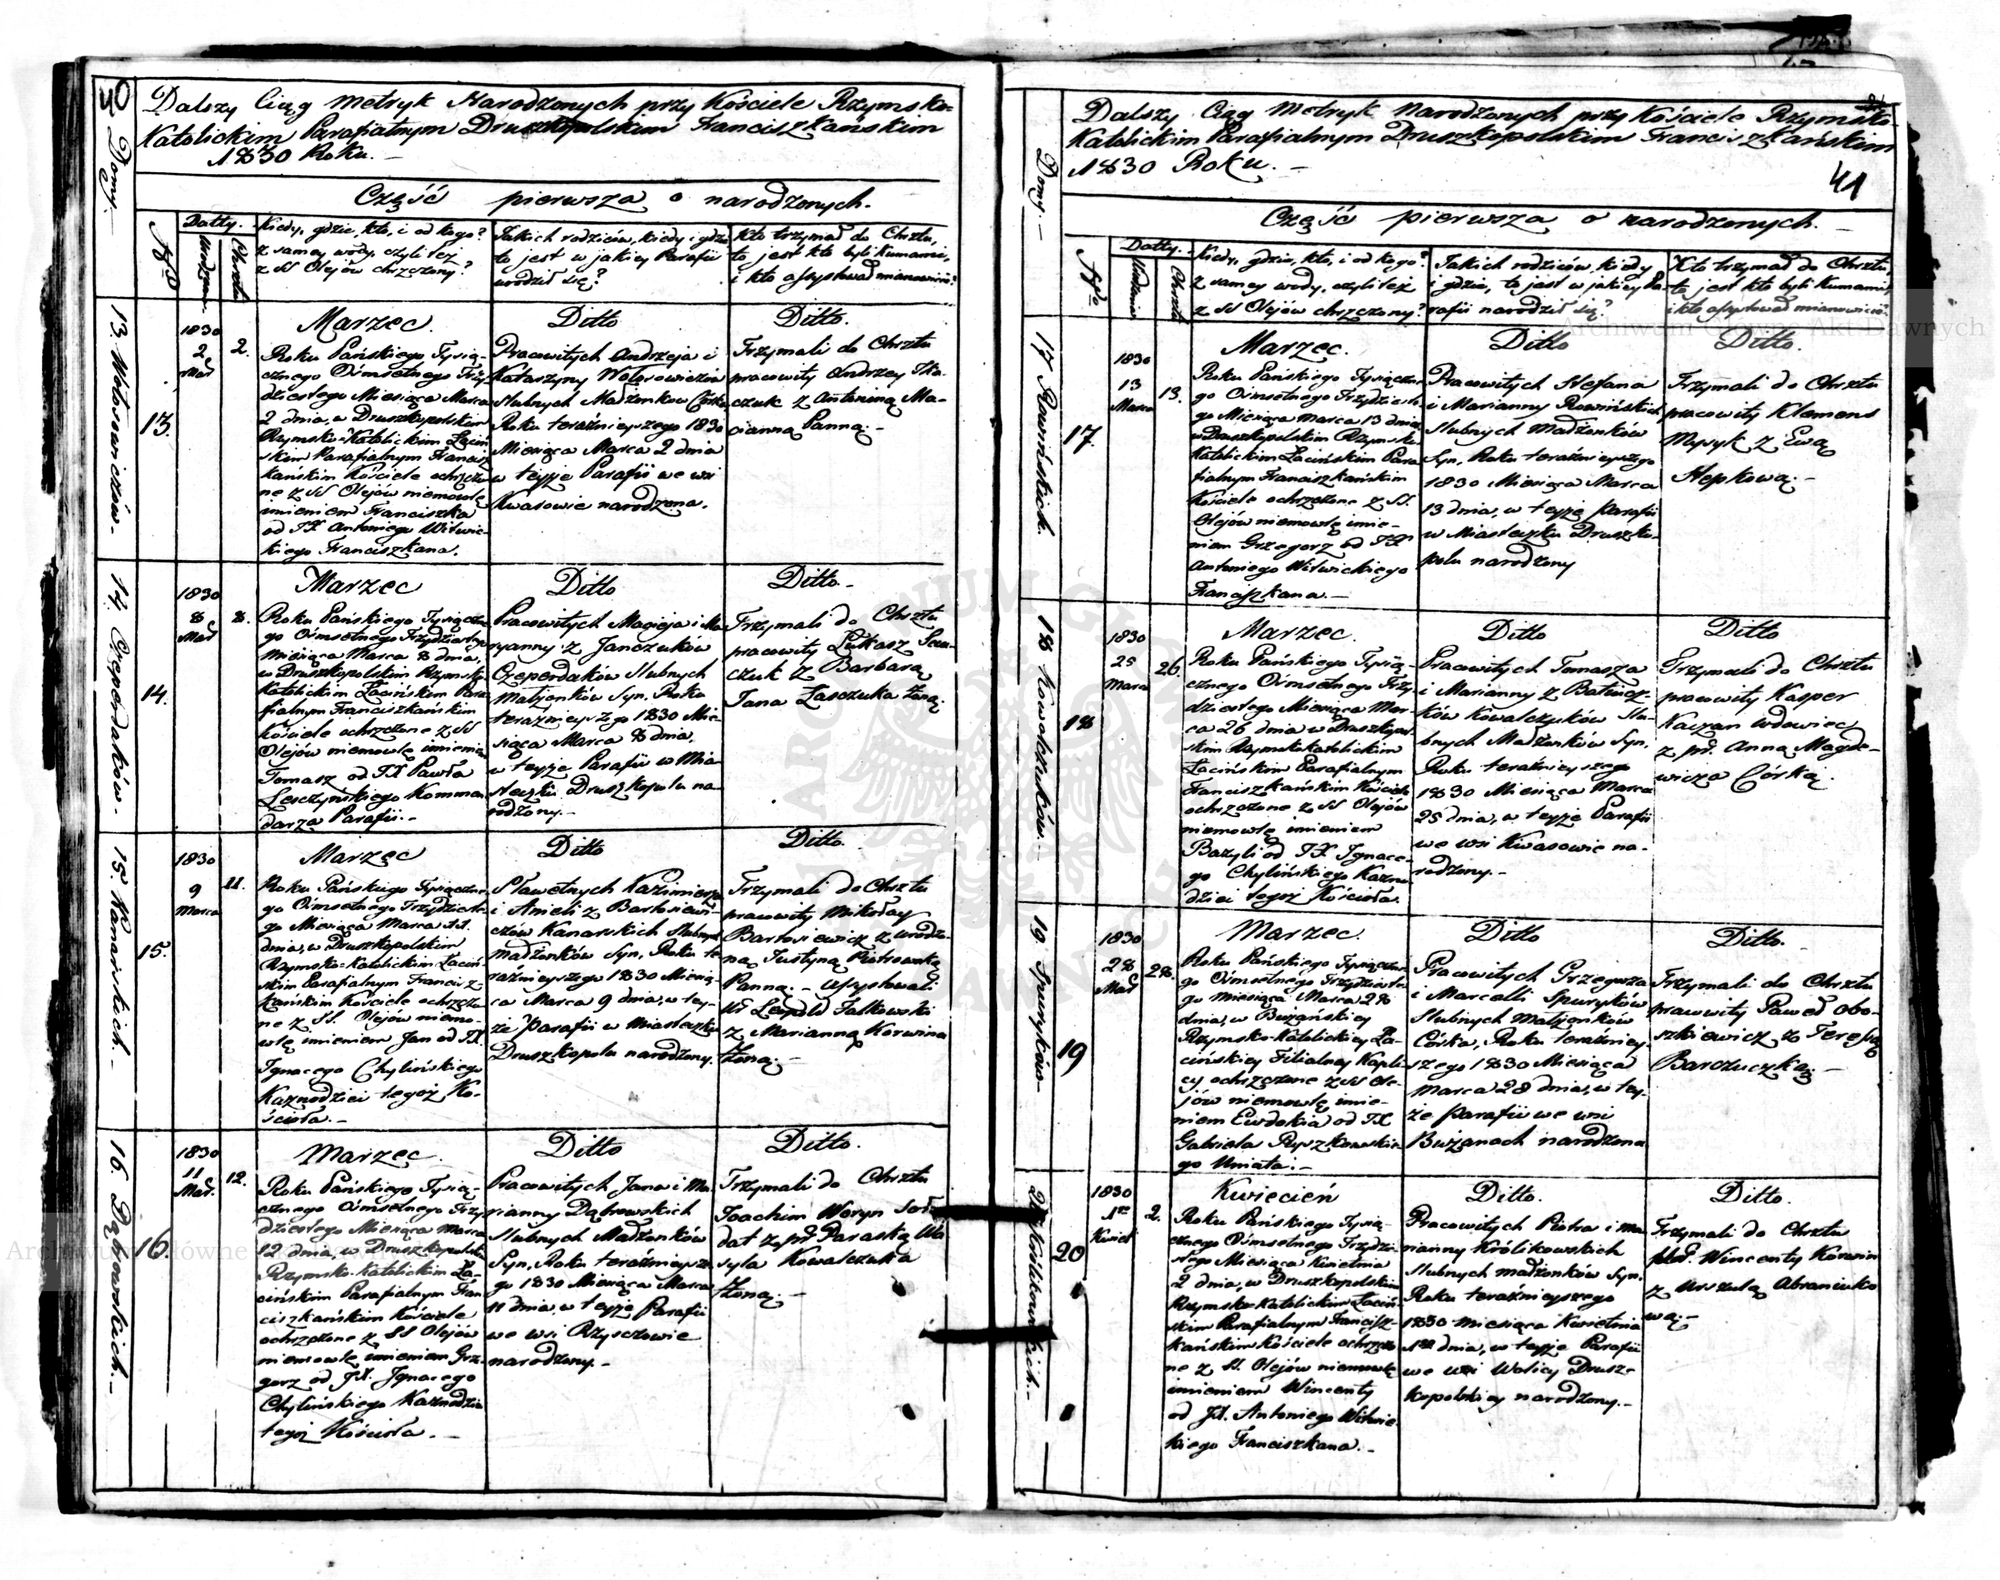 Dalszy Ciąg Metryk Narodzonych przy Kościele Rzymsko-
Katolickim Parafialnym Druszkopolskim Franciszkańskim
1830 Roku.—
Domy.—
Część pierwsza o narodzonych.
Datty.
Urodzenia
Chrztu
Kiedy, gdzie, kto, i od kogo?
z samey wody, czyli też
z SS Olejów chrzczony?
Jakich rodziców, kiedy i gdzie
to jest w jakiey Parafii
urodził się?
Kto trzymał do Chrztu,
to jest kto byli Kumami,
i kto assystował mianowicie?
13. Wołosowiczów.—
13.
1830
2
Mar
2.
Marzec.
Roku Pańskiego Tysią-
cznego Ośmsetnego Trzy
dziestego Miesiąca Marca
2 dnia, w Druszkopolskim
Rzymsko-Katolickim Łaciń
skim Parafialnym Francisz
kańskim Kościele ochrzczo
ne z SS Olejów niemowlę
imieniem Franciszka
od JX Antoniego Witwic-
kiego Franciszkana.
Ditto
Pracowitych Andrzeja i
Katarzyny
Slubnych Madżonkow Córka
Roku teraźnieyszego 1830
Miesiąca Marca 2 dnia
w teyże Parafii we wsi
Kwasowie narodzona.
Ditto.
Trzymali do Chrztu
pracowity Andrzey
z Antoniną Ma-
cianną Panną.—
14. Czeperdaków.—
14.
1830
8
Mar
8.
Marzec
Roku Pańskiego Tysiączne
go Ośmsetnego Trzydziestego
Miesiąca Marca 8 dnia,
w Druszkopolskim Rzymsko
Katolickim Łacińskim Para
fialnym Franciszkańskim
Kościele ochrzczone z SS
Olejów niemowlę imieniem
Tomasz od JX Pawła
Lesczyńskiego Kommen
darza Parafii.—
Ditto
Pracowitych Macieja i Ma
ryanny z Janczuków
Czeperdaków Slubnych
Matżonków Syn, Roku
teraznieyszego 1830 Mie-
siąca Marca 8 dnia,
w teyże Parafii w Mia
steczku Druszkopolu na-
rodzony.—
Ditto.—
Trzymali do Chrztu
pracowity Łukasz
z Barbarą
Jana Łasczuka Żoną.
15. Kanarskich.—
15.
1830
9
Marca
11.
Marzec
Roku Pańskiego Tysiączne
go Ośmsetnego Trzydzieste-
go Miesiąca Marca 11
dnia, w Druszkopolskim
Rzymsko-Katolickim Łaciń
skim Parafialnym Francisz
kańskim Kościele ochrzczo
ne z SS. Olejów niemo-
wlę imieniem Jan od JX
Ignacego Chylińskiego
Kaznodziei tegoż Ko-
ścioła.—
Ditto
Sławetnych Kazimierza
i Anieli z Bartosiewi-
czów Kanarskich Slubnych
Madżonków Syn, Roku te
raźnieyszego 1830 Miesią-
ca Marca 9 dnia, w tey-
że Parafii w Miasteczku
Druszkopolu narodzony.
Ditto.
Trzymali do Chrztu
pracowity Mikołay
Bartosiewicz z Urodzo-
ną Justyną Piotrowską
Panną.— Assystowali
Leopold Falkowski
z Marianną Korwina
Żoną.—
16. Dąbrowskich.—
16.
1830
11
Mar.
12.
Marzec.
Roku Pańskiego Tysią-
cznego Ośmsetnego Trzy
dziestego Miesiąca Marca
12 dnia, w Druszkopolsk
Rzymsko-Katolickim Ła-
cińskim Parafialnym Fran-
ciszkańskim Kościele
ochrzczone z SS Olejów
niemowlę imieniem Grze-
gorz od JX. Ignacego
Chylińskiego Kaznodziei
tegoż Kościoła.—
Ditto
Pracowitych Jana i Ma-
rianny Dąbrowskich
Slubnych Madżonków
Syn, Roku teraźnieysze-
go 1830 Miesiąca Marca
11 dnia, w teyże Parafii
we wsi Rzysczowie
narodzony.—
Ditto.
Trzymali do Chrztu
Joachim Woryn Soł-
dat z pr. Paraską Wa
syla Kowalczuka
Żoną.—
Dalszy Ciąg Metryk Narodzonych przy Kościele Rzymsko-
Katolickim Parafialnym Druszkopolskim Franciszkańskim
1830 Roku.—
41
Domy.—
Część pierwsza o narodzonych.—
Datty.
Urodzenia
Chrztu
Kiedy, gdzie, kto, i od kogo?
z samey wody, czyli też
z SS Olejów chrzczony?
Jakich rodziców, kiedy
i gdzie, to jest w jakiey Pa-
rafii narodził się?
Kto trzymał do Chrztu,
to jest kto byli Kumami,
i kto assystował mianowicie.
17. Rowińskich.
17.
1830
13
Marca
13.
Marzec.
Roku Pańskiego Tysiączne-
go Ośmsetnego Trzydzieste-
go Miesiąca Marca 13 dnia,
w Druszkopolskim Rzymsko-
Katolickim Łacińskim Para
fialnym Franciszkańskim
Kościele ochrzczone z SS.
Olejów niemowlę imie-
niem Grzegorz od JX
Antoniego Witwickiego
Franciszkana.—
Ditto
Pracowitych Stefana
i Marianny Rowińskich
Slubnych Madżonków
Syn, Roku teraźnieyszego
1830 Miesiąca Marca
13 dnia, w teyże Parafii
w Miasteczku Druszko-
polu narodzony
Ditto.
Trzymali do Chrztu
pracowity Klemens
Mysyk z Ewą
Stepkową.—
18 Kowalczuków.—
18
1830
25
Marca
26.
Marzec.
Roku Pańskiego Tysią-
cznego Ośmsetnego Trzy
dziestego Miesiąca Mar-
ca 26 dnia w Druszkopol-
skim Rzymskokatolickim
Łacińskim Parafialnym
Franciszkańskim Kościele
ochrzczone z SS Olejów
niemowlę imieniem
Bazyli od JX Ignace-
go Chylińskiego Kazno
dziei tegoż Kościoła.
Ditto
Pracowitych Tomasza
i Marianny z
Kowalczuków Slu-
bnych Madżonków Syn,
Roku teraźnieyszego
1830 Miesiąca Marca
25 dnia, w teyże Parafii
we wsi Kwasowie na-
rodzony.—
Ditto
Trzymali do Chrztu
pracowity Kasper
Kaczan Wdowiec
z pr. Anną Magde-
wicza Córką.
19 Spuryków.—
19
1830
28
Mar
28.
Marzec.
Roku Pańskiego Tysiączne-
go Ośmsetnego Trzydzieste-
go Miesiąca Marca 28
dnia, w Bużańskiey
Rzymsko-Katolickiey Ła-
cińskiey Filialney Kapli-
cy ochrzczone z SS Ole-
jów niemowlę imie-
niem Ewdokia od JX
Gabriela Ryszkowskie-
go Uniata.—
Ditto
Pracowitych Grzegorza
i Marcelli Spuryków
Slubnych Matżonków
Córka, Roku teraźniey-
szego 1830 Miesiąca
Marca 28 dnia, w tey-
że Parafii we wsi
Bużanach narodzona
Ditto.
Trzymali do Chrztu
pracowity Paweł Obo-
szkiewicz z Teressą
Barczuczką.—
20 Królikowskich.—
20
1830
1go
Kwiet
2.
Kwiecień
Roku Pańskiego Tysią-
cznego Ośmsetnego Trzydzie
stego Miesiąca Kwietnia
2 dnia, w Druszkopolskim
Rzymsko-Katolickim Łaciń-
skim Parafialnym Francisz-
kańskim Kościele ochrzczo
ne z SS. Olejów niemowlę
imieniem Wincenty
od JX. Antoniego Witwic
kiego Franciszkana.—
Ditto.
Pracowitych Piotra i Ma
rianny Królikowskich
Slubnych Madżonków Syn,
Roku teraźnieyszego
1830 Miesiąca Kwietnia
1go dnia, w teyże Parafii
we wsi Wolicy Drusz-
kopolskiey narodzony.—
Ditto.
Trzymali do Chrztu
Wincenty Korwin
z Urszulą Abramiuko
wą.—
Archiwum Główne Akt Dawnych